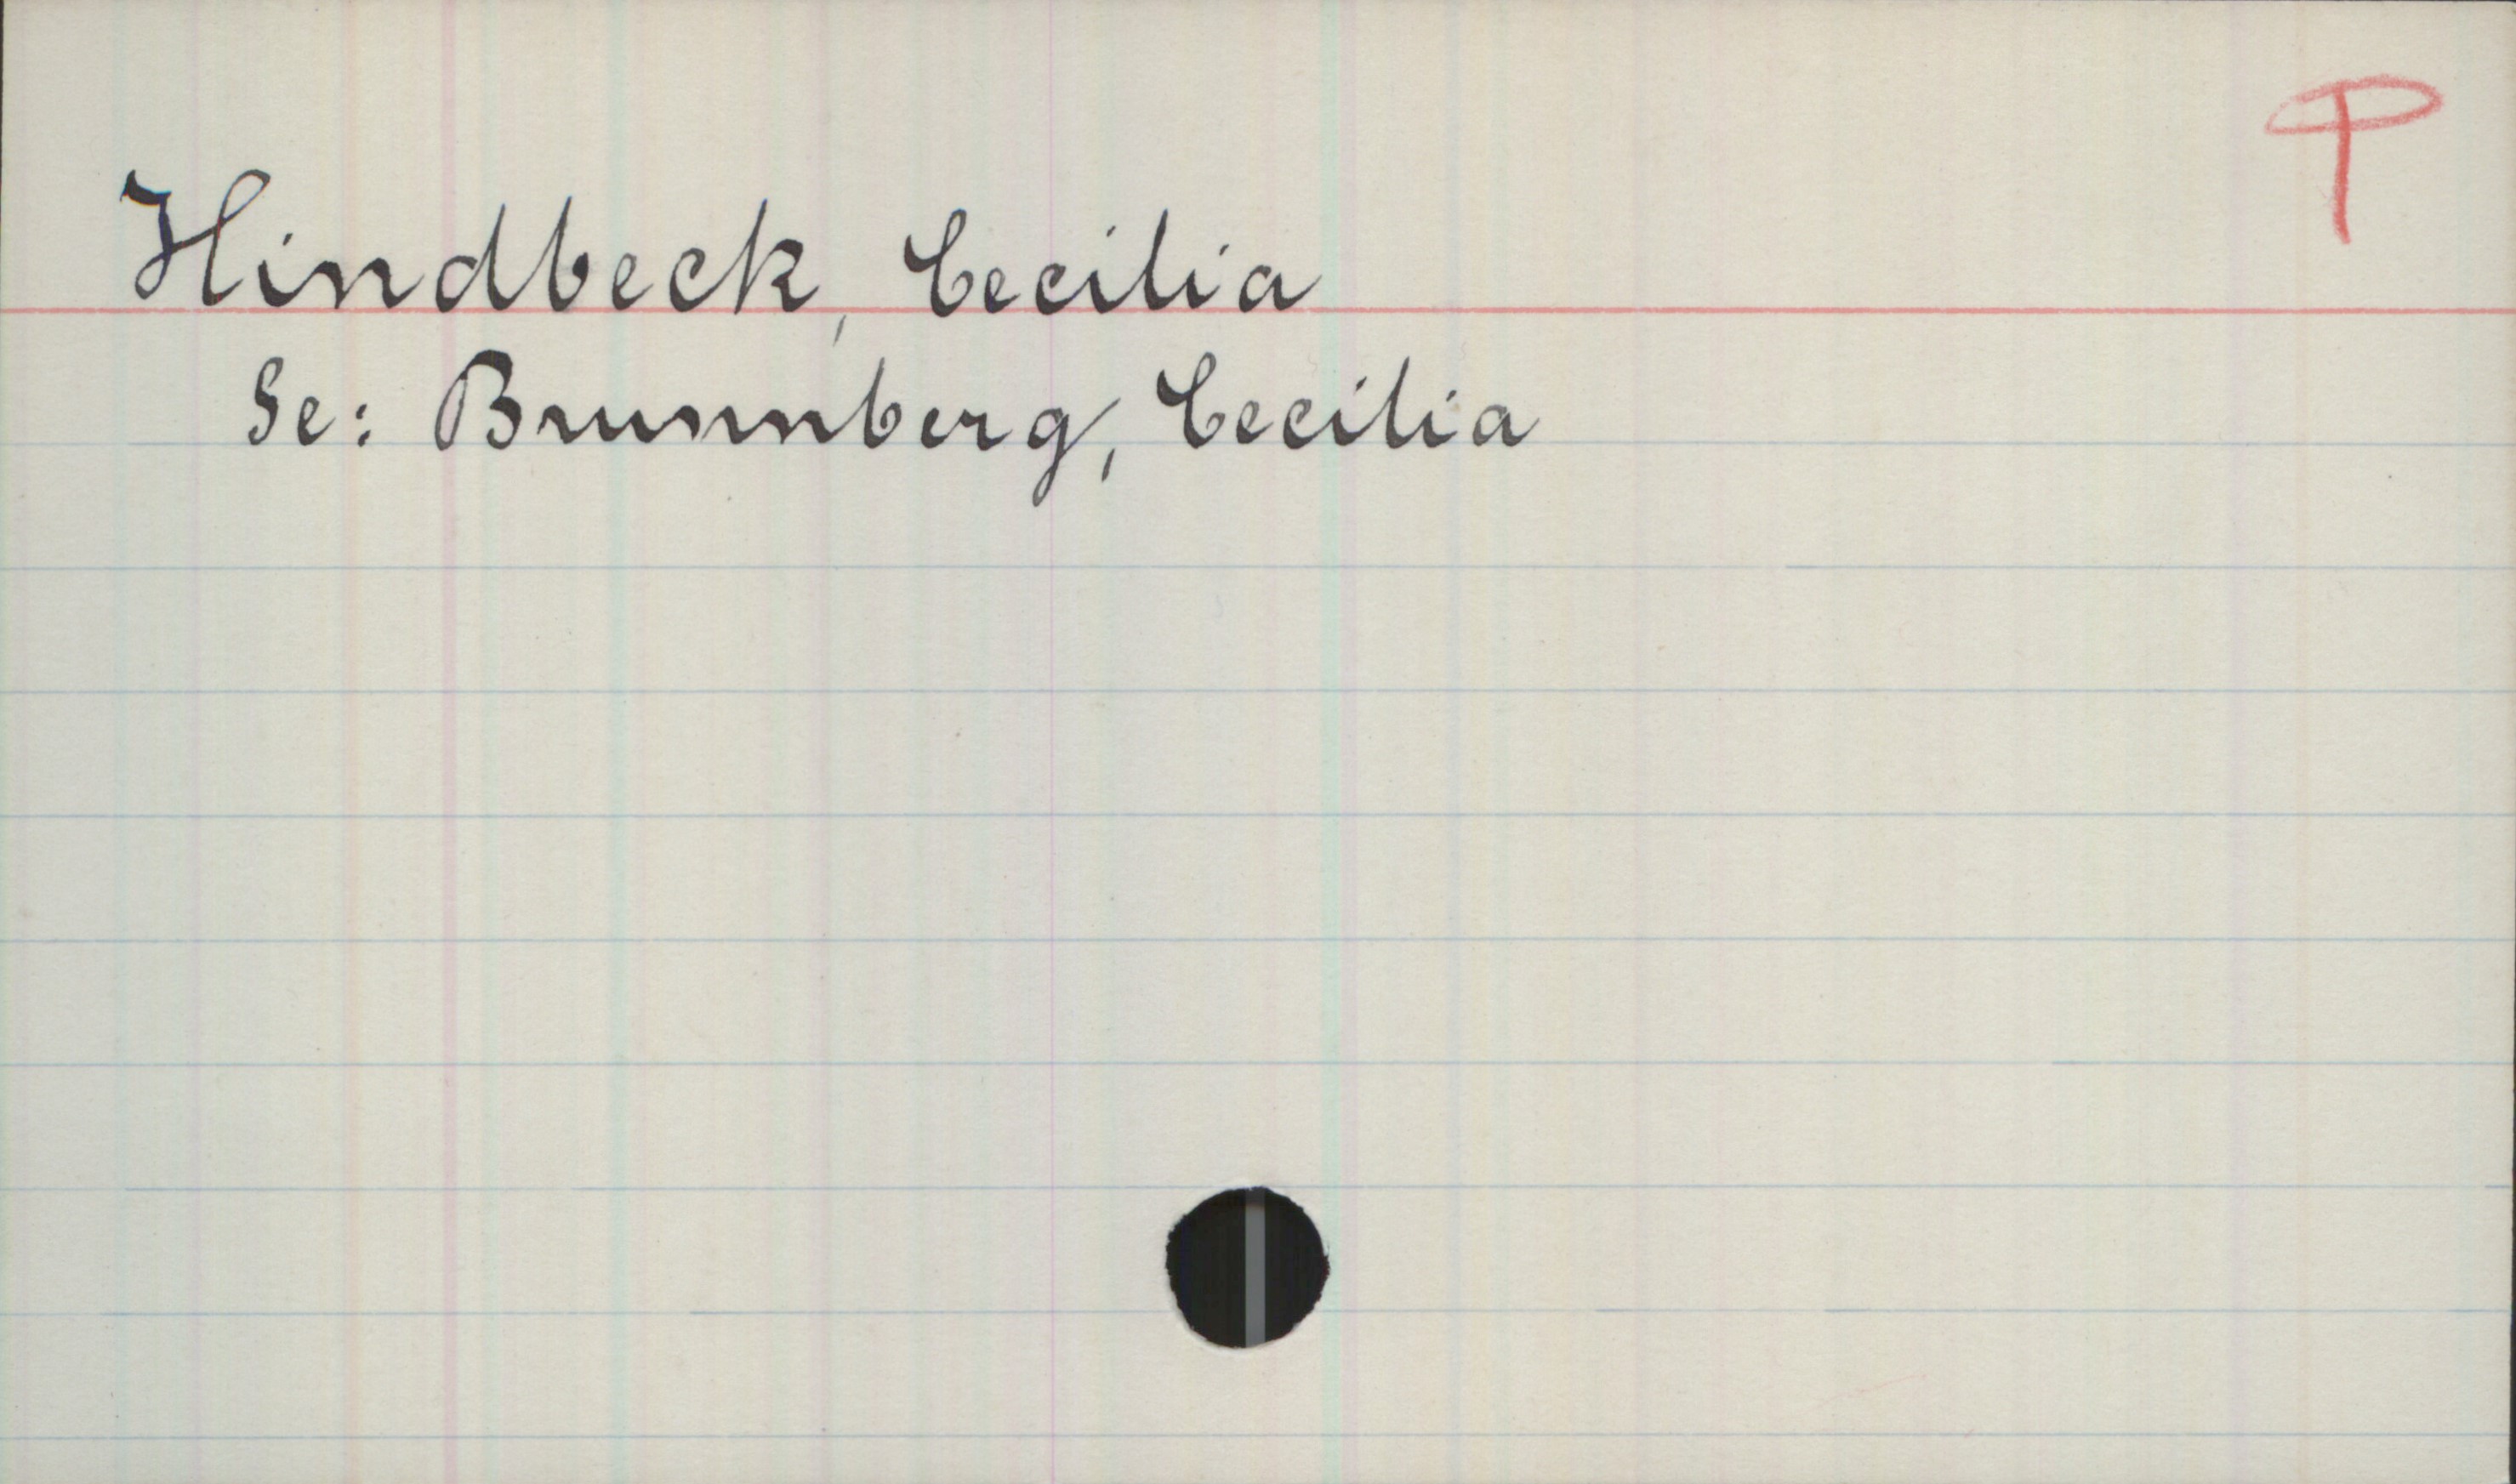 P
Hindbeck, Cecilia
Se: Brunnberg, Cecilia